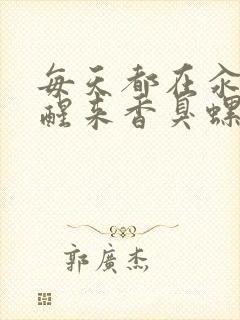 每天都在汆
醒来香臭螺
郭廣杰